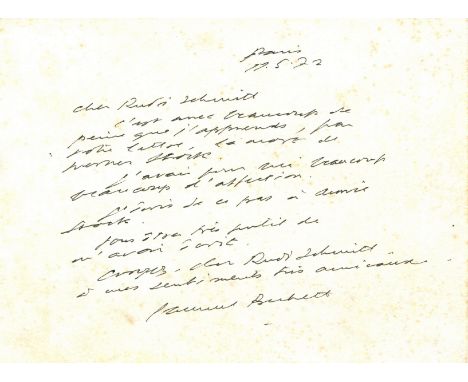 Paris
19.5.72
Cher Rudi Schmitt
c'est avec beaucoup de
peine que j'apprends, par
votre lettre, la mort de
Werner Stock.
J'avais pour lui beaucoup
beaucoup d'affection.
J'écris de ce pas à
Stock.
Vous êtes très gentil de
m'avoir écrit.
Croyez, cher Rudi Schmitt
à mes sentiments très amicaux.
Samuel Beckett